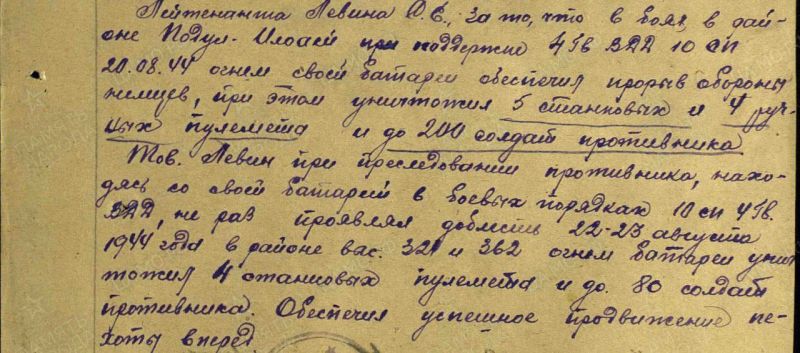 Лейтенанта Левина О.С., за то, что в боях в рай-
оне Подул-Илоаей при поддержке 4 Гв ВДД 10 СП
20.08.44 огнем своей батареи обеспечил прорыв обороны
немцев, при этом уничтожил 5 станковых и 4 руч-
ных пулемета и до 200 солдат противника
Тов. Левин при преследовании противника, нахо-
дясь со своей батареей в боевых порядках 10 сп 4 Гв.
ВДД, не раз проявлял доблесть 22-23 августа
1944 года в районе выс. 321 и 362 огнем батареи унич
тожил 4 станковых пулемета и до 80 солдат
противника. Обеспечил успешное продвижение пе-
хоты вперед